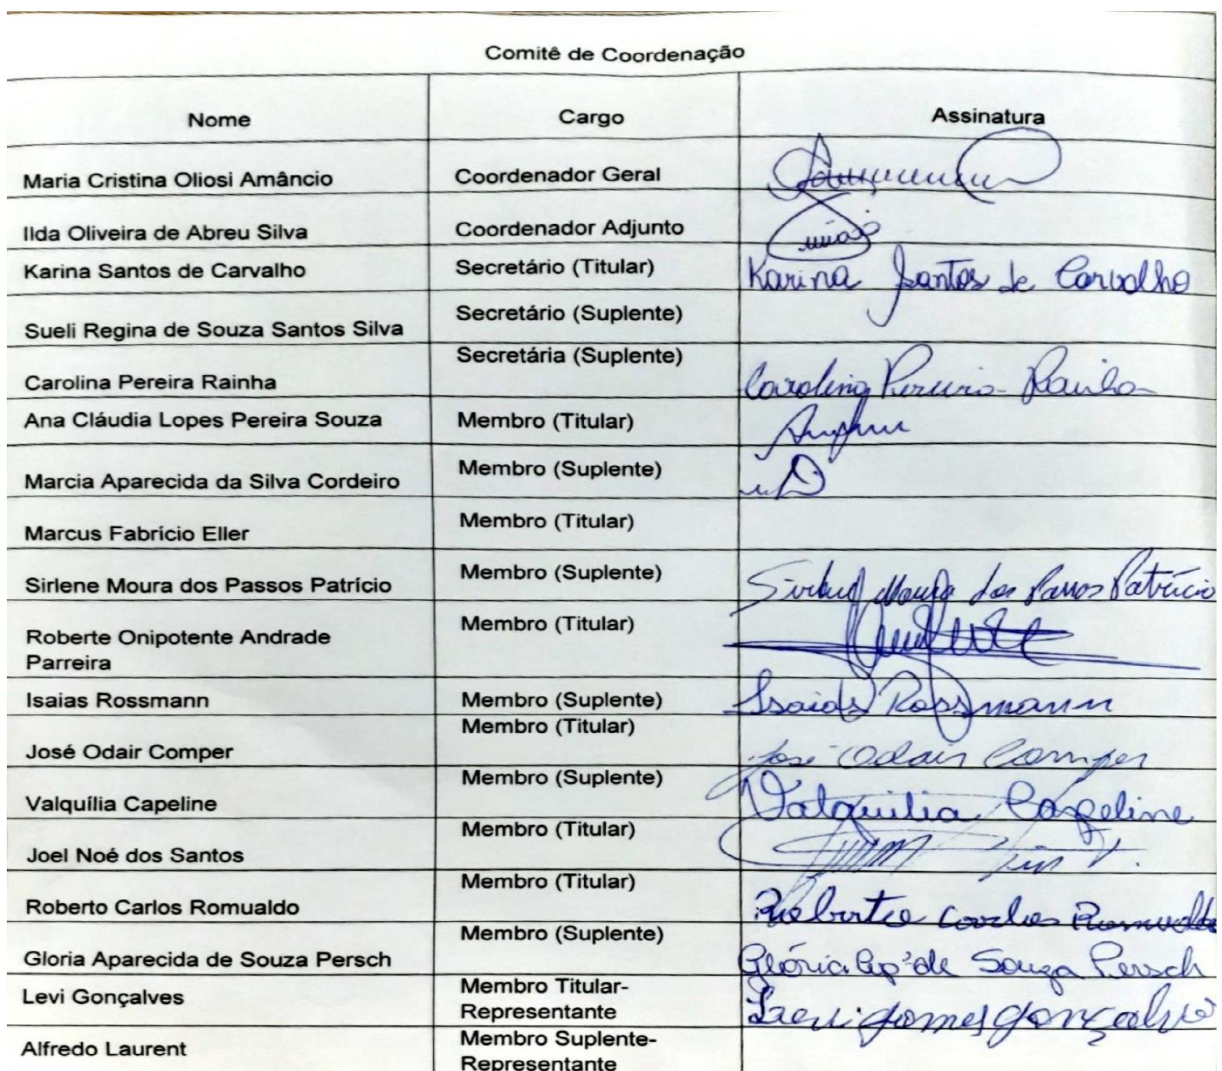 Comitê de Coordenação
Nome Cargo Assinatura
Maria Cristina Oliosi Amâncio Coordenador Geral
Ilda Oliveira de Abreu Silva Coordenador Adjunto
Karina Santos de Carvalho Secretário (Titular) Karina Santos de Carvalho
Sueli Regina de Souza Santos Silva Secretário (Suplente)
Carolina Pereira Rainha Secretária (Suplente) Carolina Pereira Rainha
Ana Cláudia Lopes Pereira Souza Membro (Titular)
Marcia Aparecida da Silva Cordeiro Membro (Suplente)
Marcus Fabrício Eller Membro (Titular)
Sirlene Moura dos Passos Patrício Membro (Suplente) Sirlene Moura dos Passos Patrício
Roberte Onipotente Andrade Membro (Titular)
Parreira
Isaias Rossmann Membro (Suplente) Isaias Rossmann
José Odair Comper Membro (Titular) José Odair Comper
Valquília Capeline Membro (Suplente) Valquilia Capeline
Joel Noé dos Santos Membro (Titular)
Roberto Carlos Romualdo Membro (Titular) Roberto Carlos Romualdo
Gloria Aparecida de Souza Persch Membro (Suplente) Glória Ap. de Souza Persch
Levi Gonçalves Membro Titular- Levi Gomes Gonçalves
Representante
Alfredo Laurent Membro Suplente-
Representante